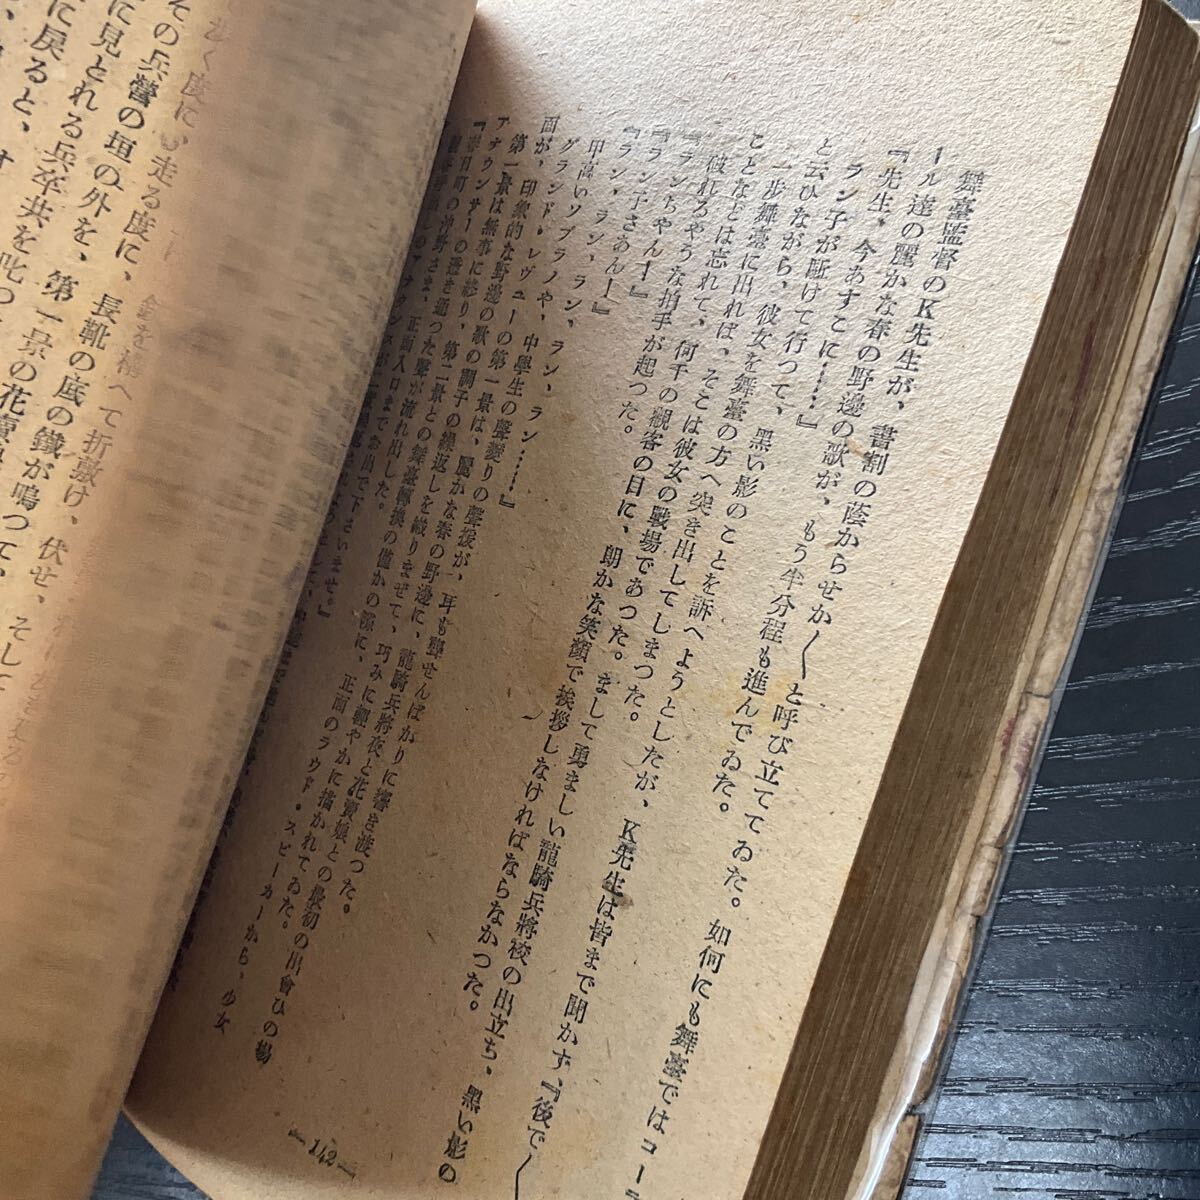 舞臺監督のK先生が、書割の蔭からせか〳〵と呼び立ててゐた。如何にも舞臺ではコーラ
ール達の麗かな春の野邊の歌が、もう半分程も進んでゐた。
『先生、今あすこに……』
ラン子が駈けて行つて、黑い影のことを訴へようとしたが、K先生は皆まで聞かず、『後で〳〵
と云ひながら、彼女を舞臺の方へ突き出してしまつた。
一步舞臺に出れば、そこは彼女の戰場であつた。まして勇ましい龍騎兵將校の出立ち、黑い影の
ことなどは忘れて、何千の觀客の目に、朗かな笑顏で挨拶しなければならなかつた。
破れるやうな拍手が起つた。
『ランちやんー』
『ラン子さあんー』
『ラン、ラン、ラン、ラン……』
甲高いソプラノや、中學生の聲變りの聲援が、耳も聾せんばかりに響き渡つた。
グランド・レヴューの第一景は、麗かな春の野邊に、龍騎兵將校と花賣娘との最初の出會ひの場
面が、印象的な野邊の歌の調子の繰返しを織りませて、巧みに細やかに描かれてゐた。
第一景は無事に終り、第二景との舞臺轉換の僅かの隙に、正面のラウド・スピーカーから、少女
アナウンサーの透き通つた聲が流れ出した。
さま、正面入口までお出で下さいませ。』
—142—
その兵營の垣の外を、第一景の花賣
に見とれる兵卒共を叱つ
に戾ると、す
走る度に、長靴の底の鐵が鳴つて、
て折敷け、伏せ、そして